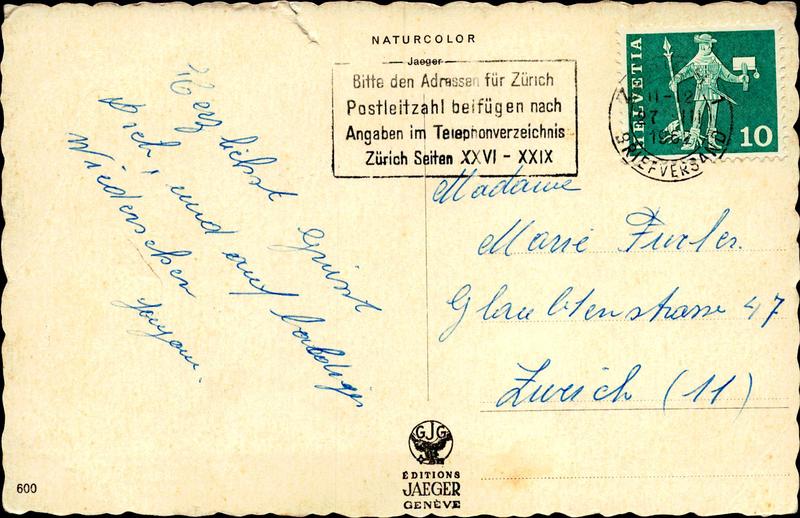 NATURCOLOR
Jaeger
Bitte den Adressen für Zürich
Postleitzahl beifügen nach
Angaben im Telephonverzeichnis
Zürich Seiten XXVI - XXIX
HELVETIA
10
BRIEFVERSAND
Herzlichst Grüsst
Dich, und auf baldiges
Wiedersehen
Madame
Marie Furler.
Glaubtenstrasse 47
Zürich (11)
GJG
ÉDITIONS
JAEGER
GENÈVE
600